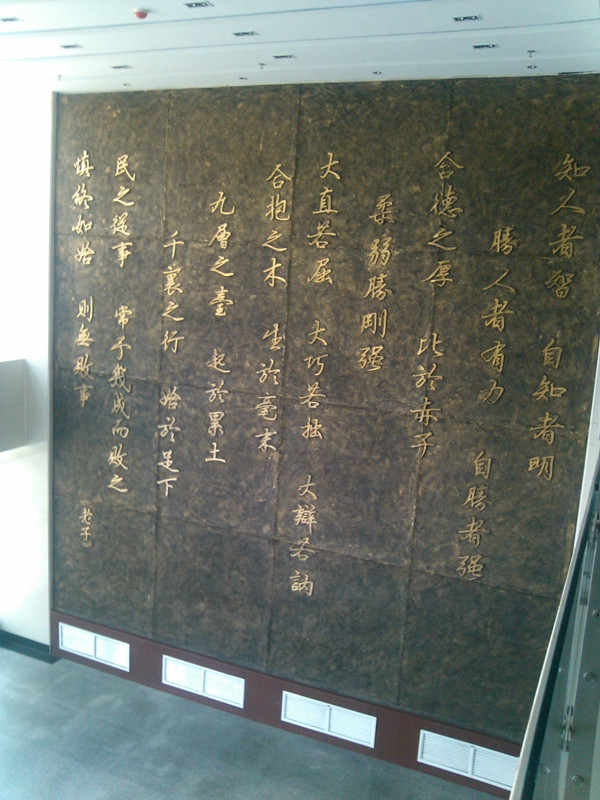 知人者智 自知者明
勝人者有力 自勝者强
含德之厚 比於赤子
柔弱勝剛强
大直若屈 大巧若拙 大辯若訥
合抱之木 生於毫末
九層之臺 起於累土
千裏之行 始於足下
民之從事 常于幾成而敗之
慎終如始 則無敗事
(老子)